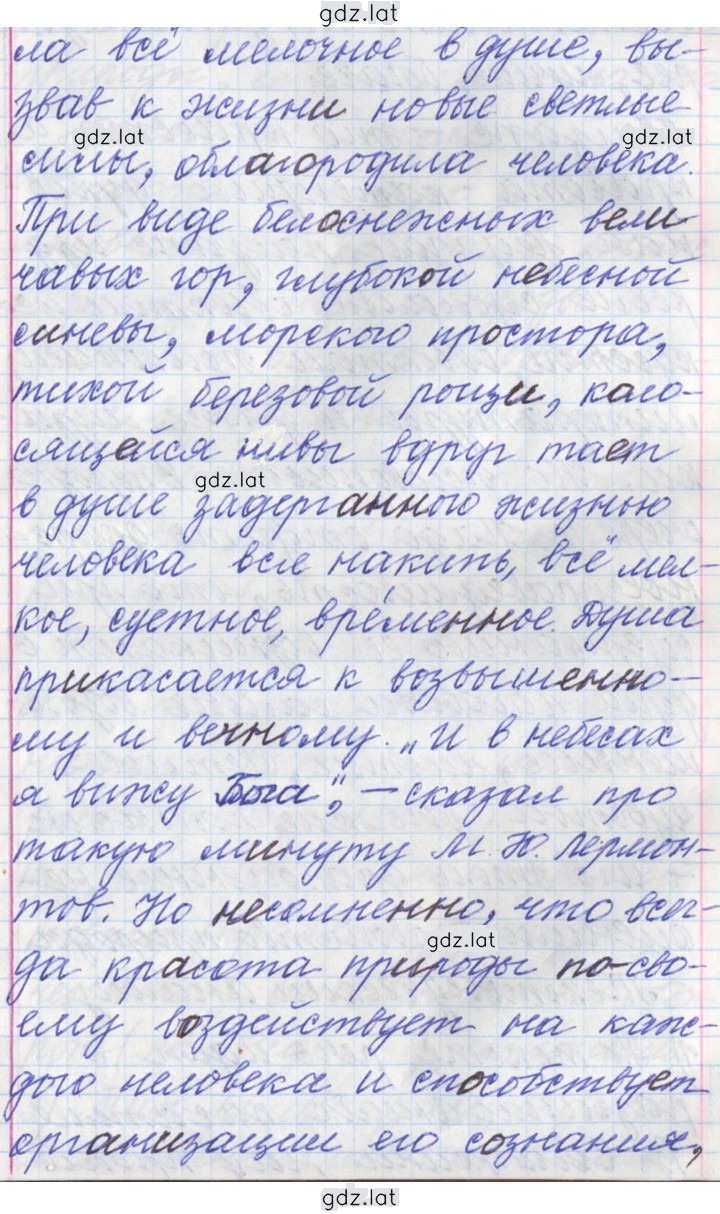 gdz.lat
ла всё мелочное в душе, вы-
звав к жизни новые светлые
gdz.lat gdz.lat
силы, облагородила человека.
При виде белоснежных вели-
чавых гор, глубокой небесной
синевы, морского простора,
тихой березовой рощи, коло-
сящейся нивы вдруг тает
gdz.lat
в душе задерганного жизнью
человека вся накипь, всё мел-
кое, суетное, временное. Душа
прикасается к возвышенно-
му и вечному. „И в небесах
я вижу Бога", – сказал про
такую минуту М. Ю. Лермон-
тов. Но несомненно, что всег-
gdz.lat
да красота природы по-сво-
ему воздействует на каж-
дого человека и способствует
организации его сознания,
gdz.lat